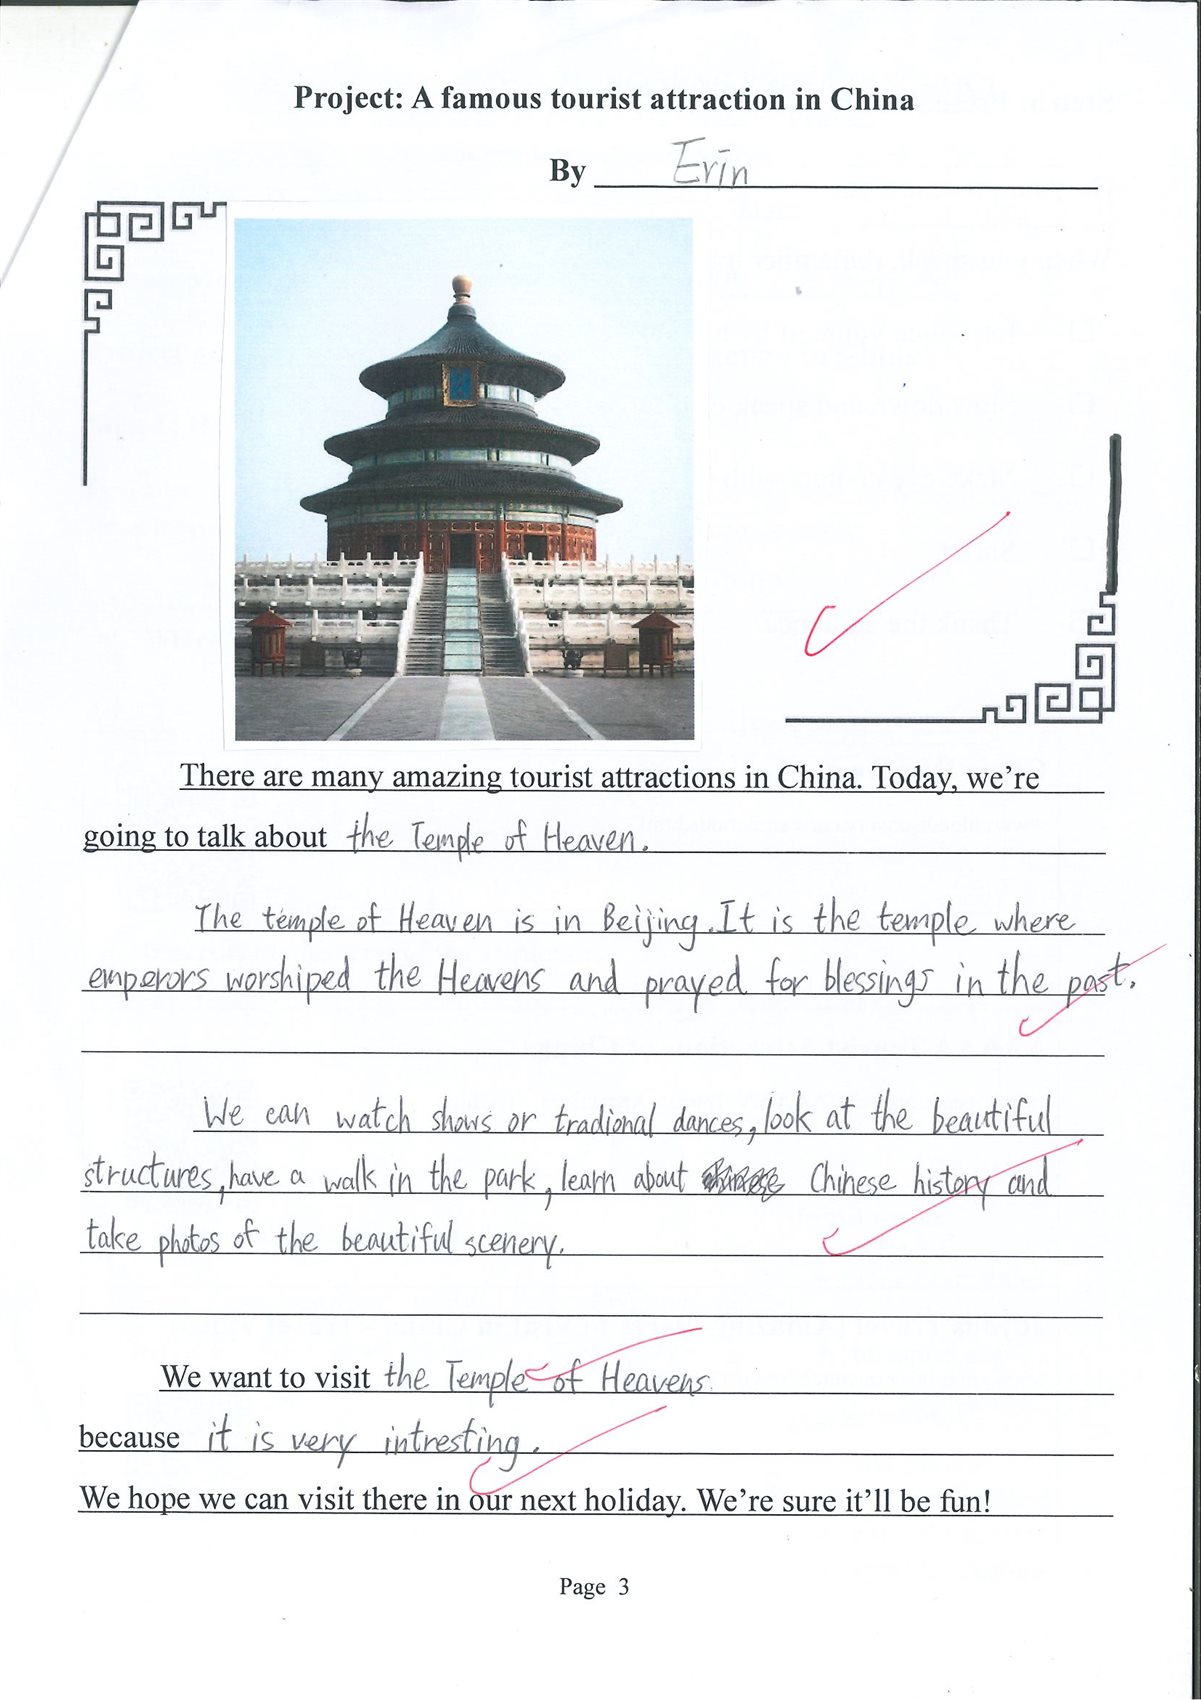 Project: A famous tourist attraction in China
By Erin
There are many amazing tourist attractions in China. Today, we're
going to talk about the Temple of Heaven.
The temple of Heaven is in Beijing. It is the temple where
emperors worshiped the Heavens and prayed for blessings in the past.
We can watch shows or tradional dances, look at the beautiful
structures, have a walk in the park, learn about Chinese history and
take photos of the beautiful scenery.
We want to visit the Temple of Heavens
because it is very intresting.
We hope we can visit there in our next holiday. We're sure it'll be fun!
Page 3